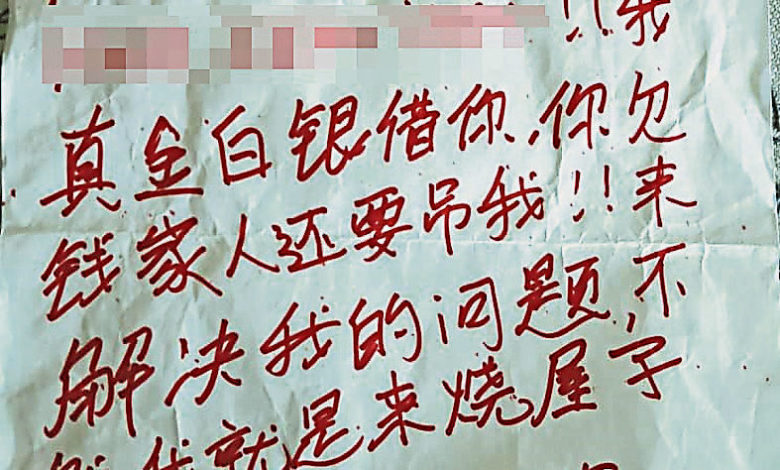 !!我
真金白银借你,你欠
钱家人还要吊我!!来
解决我的问题,不
然我就是来烧屋子